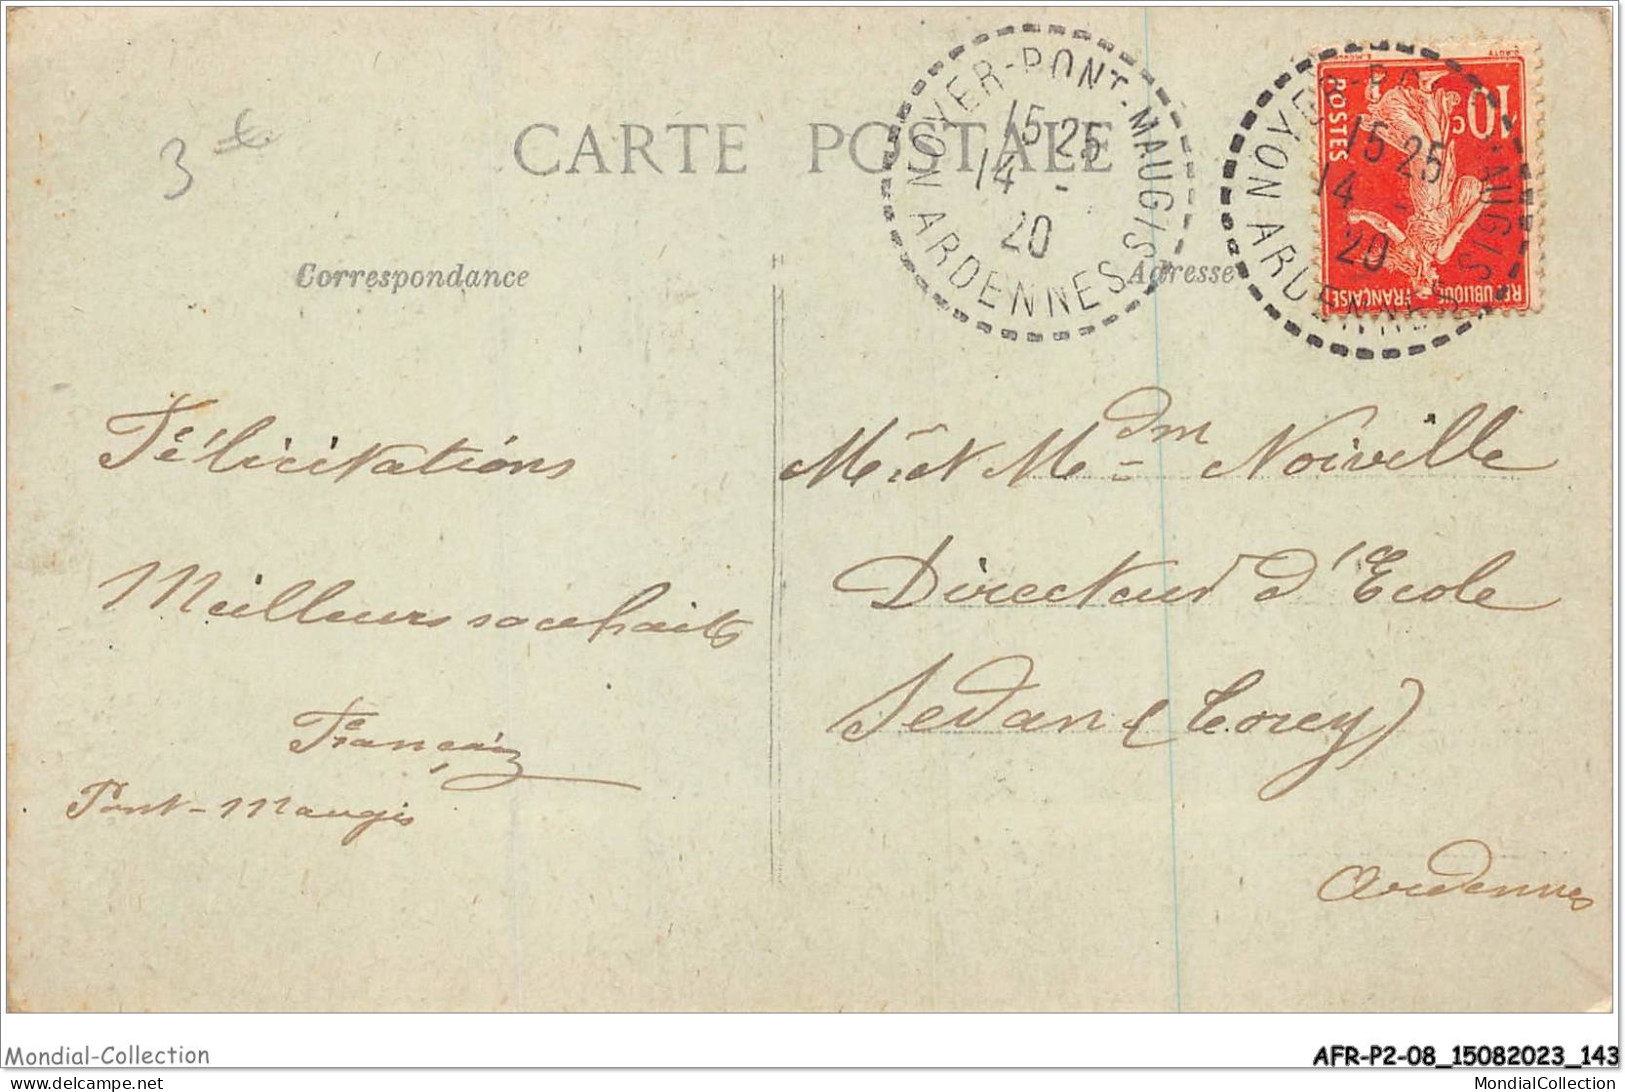 3
CARTE POSTALE
NOYER-PONT-MAUGIS
15 25
14 -
20
ARDENNES
NOYER-PO
MAUGIS
15 25
14 -
20
ARDENNES
10c
POSTES
REPUBLIQUE FRANÇAISE
Correspondance
Adresse
Félicitations
Meilleurs souhaits
Pont-Maugis
Mr et Mdm Noiville
Directeur d'Ecole
Sedan (Torcy)
Ardennes
Mondial-Collection
AFR-P2-08_15082023_143
www.delcampe.net
MondialCollection